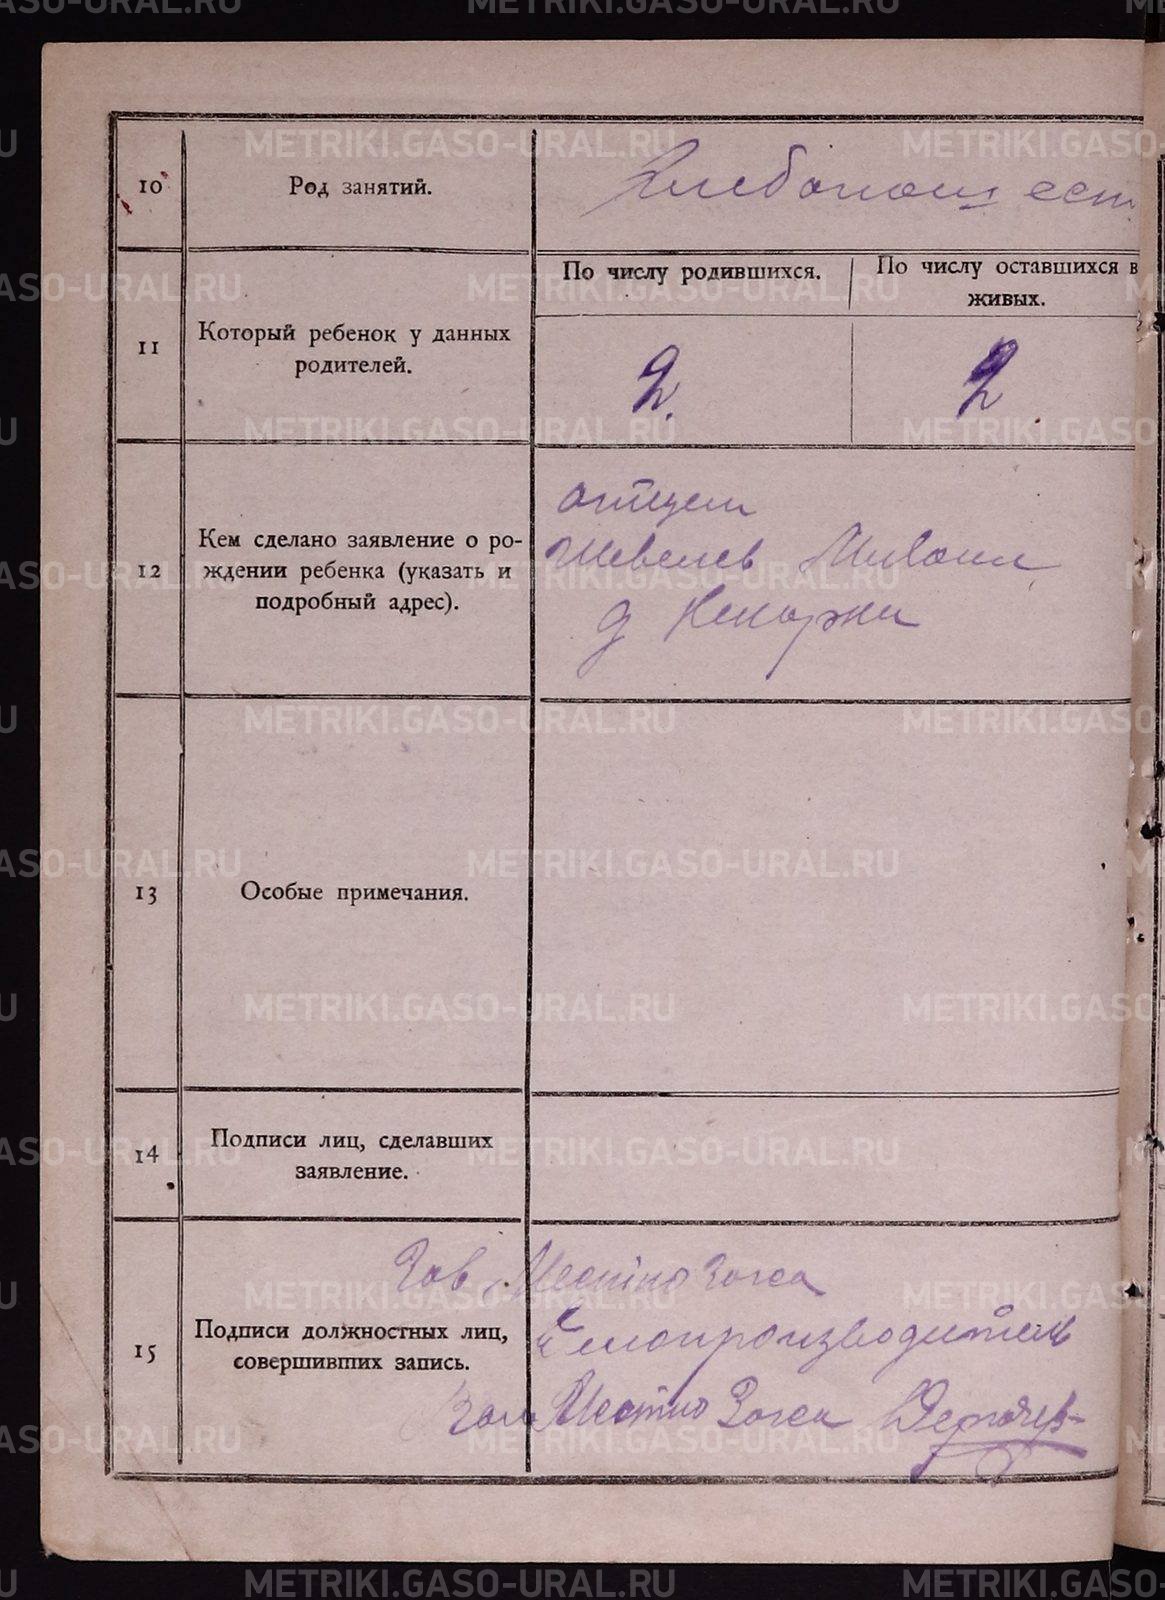 10
Род занятий.
Хлебопашест
11
Который ребенок у данных
родителей.
По числу родившихся.
По числу оставшихся в
живых.
2.
2
12
Кем сделано заявление о ро-
ждении ребенка (указать и
подробный адрес).
отцем
Шевелев Михаил
д
13
Особые примечания.
14
Подписи лиц, сделавших
заявление.
15
Подписи должностных лиц,
совершивших запись.
Зав. Местно Загса
Делопроизводитель
Местно Загса
METRIKI.GASO-URAL.RU